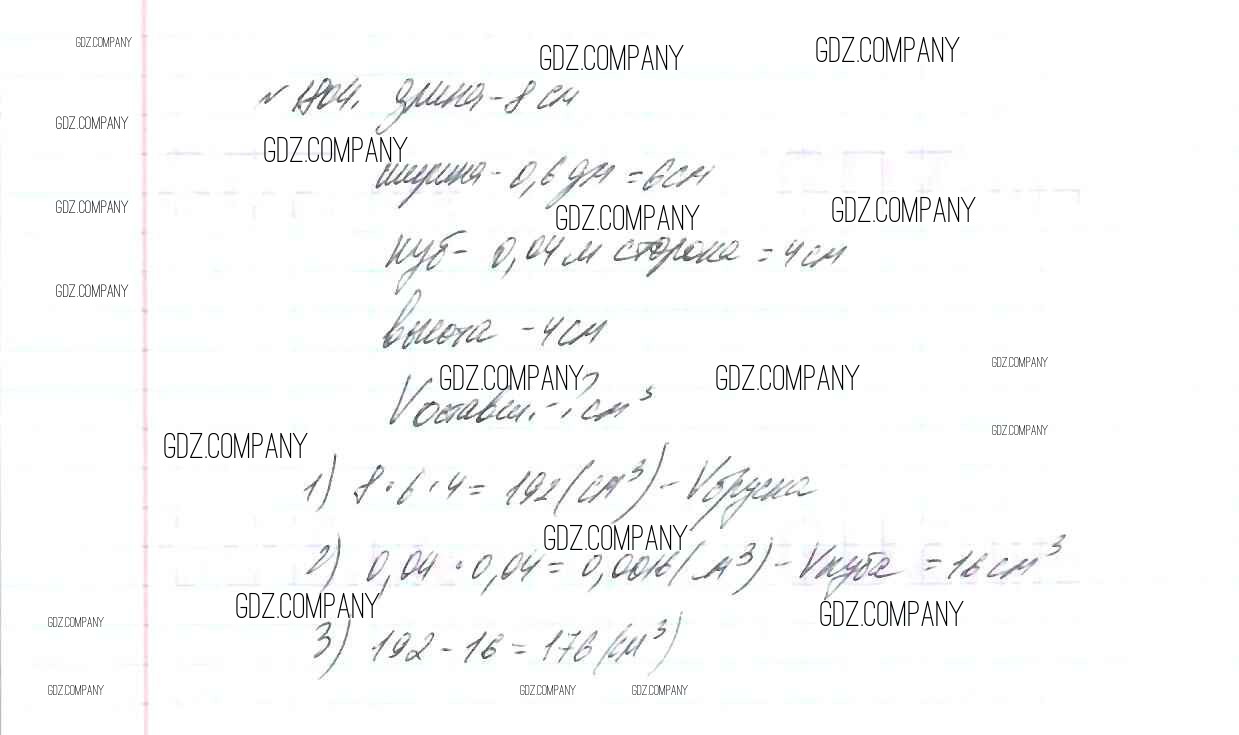 GDZ.COMPANY
GDZ.COMPANY
GDZ.COMPANY
№ 1804. длина - 8 см
GDZ.COMPANY
GDZ.COMPANY
ширина - 0,6 дм = 6 см
GDZ.COMPANY
GDZ.COMPANY
GDZ.COMPANY
куб - 0,04 м сторона = 4 см
GDZ.COMPANY
высота - 4 см
GDZ.COMPANY
GDZ.COMPANY
GDZ.COMPANY
V оставш. - ? см³
GDZ.COMPANY
GDZ.COMPANY
1) 8 · 6 · 4 = 192 (см³) - V бруска
GDZ.COMPANY
2) 0,04 · 0,04 = 0,0016 (м³) - V куба = 16 см³
GDZ.COMPANY
GDZ.COMPANY
GDZ.COMPANY
3) 192 - 16 = 176 (см³)
GDZ.COMPANY
GDZ.COMPANY
GDZ.COMPANY